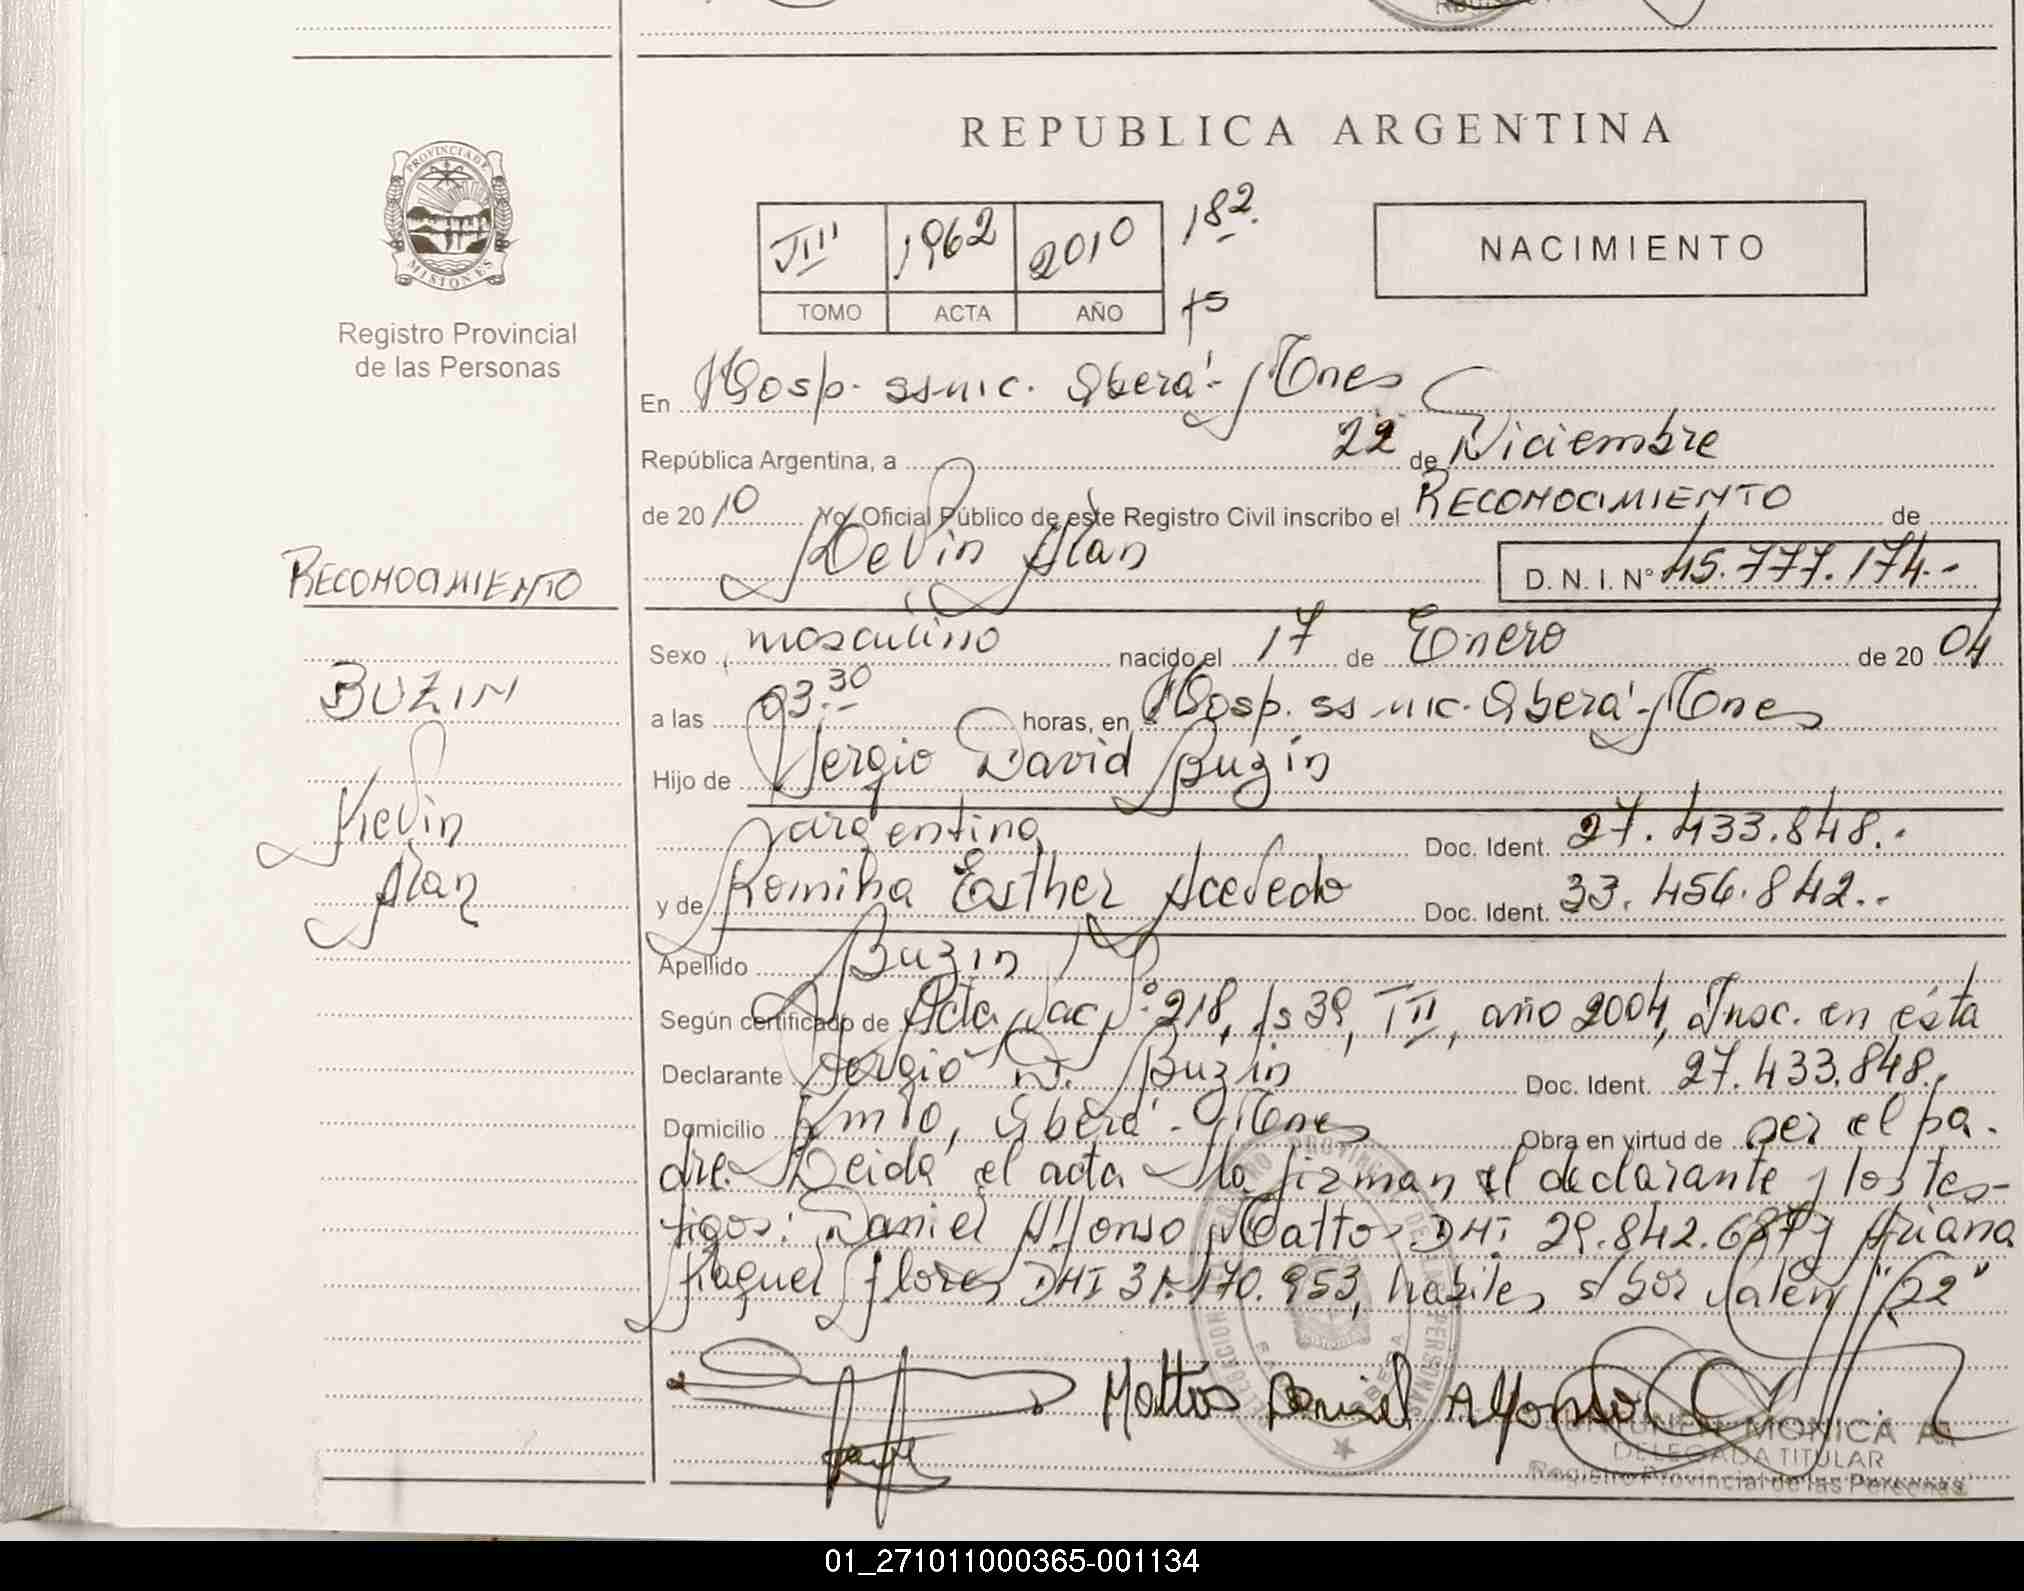 REPUBLICA ARGENTINA
PROVINCIA DE
MISIONES
Registro Provincial
de las Personas
III 1962 2010 182
TOMO ACTA AÑO fs
NACIMIENTO
En Hosp. ss-mc. Oberá - Mnes
República Argentina, a 22 de Diciembre
de 2010 Yo, Oficial Público de este Registro Civil inscribo el RECONOCIMIENTO de
Kevin Alan D. N. I. Nº 45.777.174.-
RECONOCIMIENTO
BUZIN
Kevin
Alan
Sexo masculino nacido el 17 de Enero de 2004
a las 03.30 horas, en Hosp. ss-mc. Oberá - Mnes
Hijo de Sergio David Buzin
argentino Doc. Ident. 27.433.848.-
y de Romina Esther Acevedo Doc. Ident. 33.456.842.-
Apellido Buzin
Según certificado de Acta Nac Nº 218, fs 39, TII, año 2004, Insc. en ésta
Declarante Sergio D. Buzin Doc. Ident. 27.433.848.-
Domicilio Km 10, Oberá - Mnes Obra en virtud de ser el pa-
dre. Leida el acta la firman el declarante y los tes-
tigos: Daniel Alfonso Mattos DNI 29.842.687 y Ariana
Raquel Flores DNI 31.170.953, habiles s/bor Valen "22"
Mattos Daniel Alfonso
MONICA A.
DELEGADA TITULAR
Registro Provincial de las Personas
01_271011000365-001134